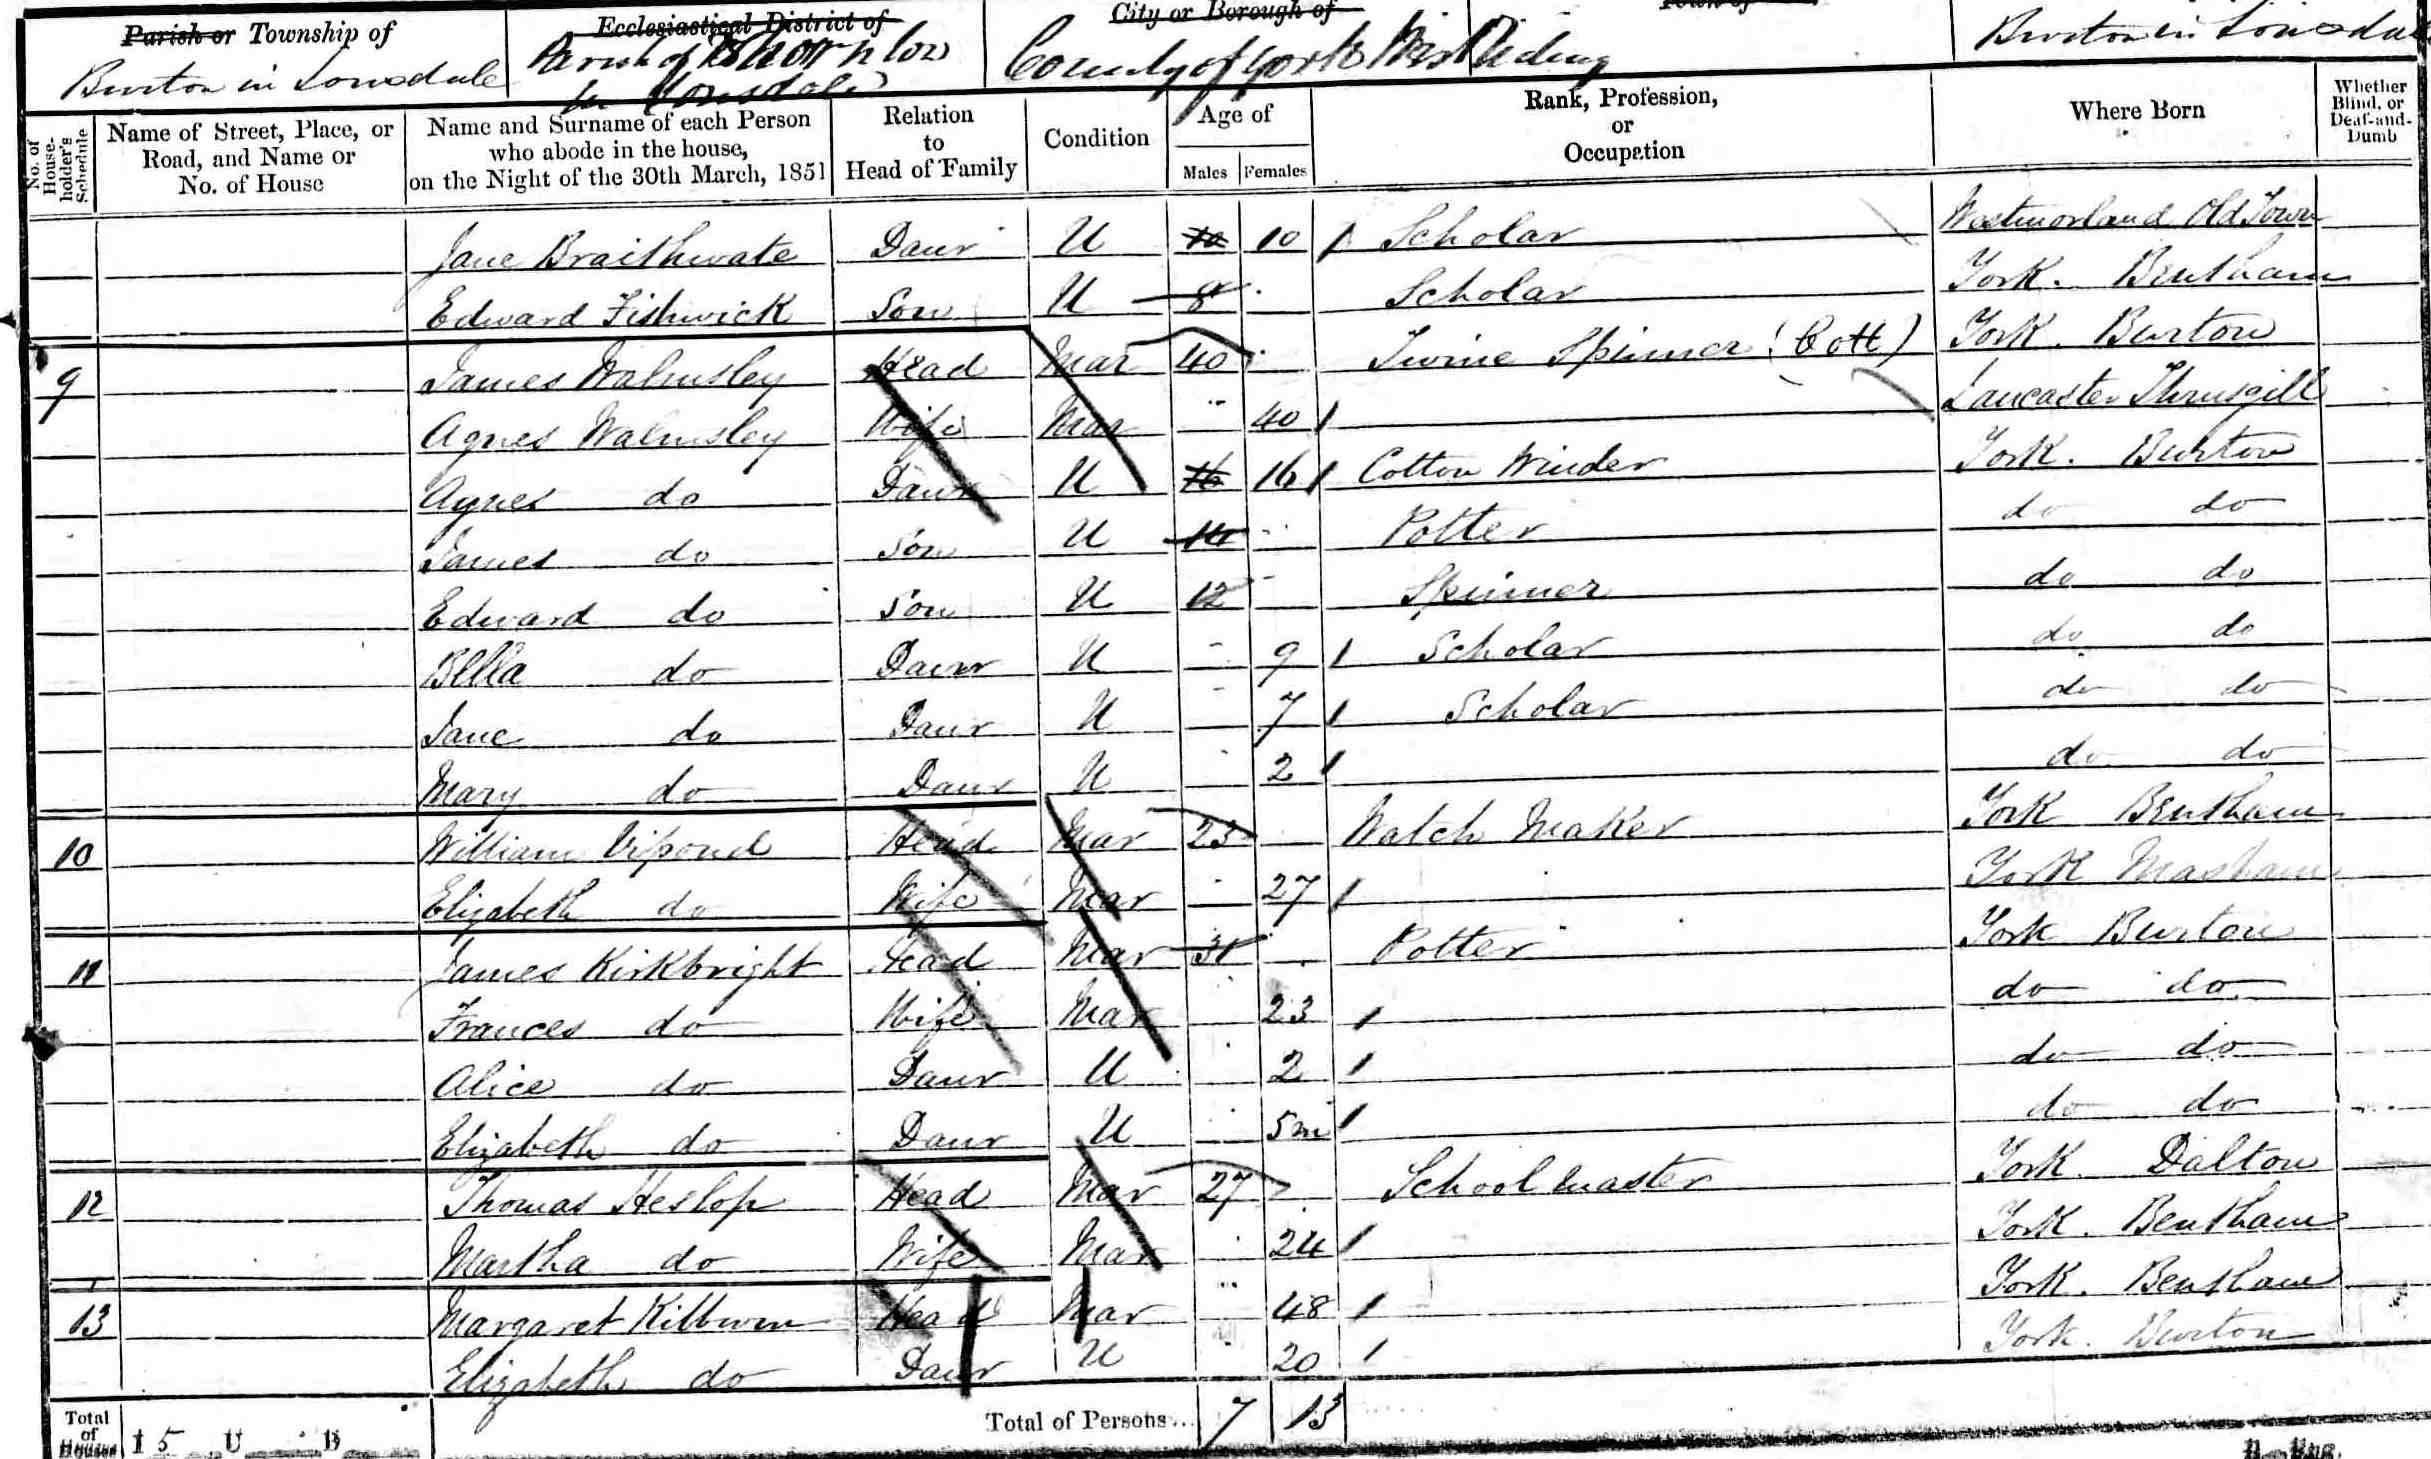 Parish or Township of Ecclesiastical District of City or Borough of Town of
Burton in Lonsdale Parish of Thornton in Lonsdale County of York West Riding Burton in Lonsdale
No. of House-holder's Schedule Name of Street, Place, or Road, and Name or No. of House Name and Surname of each Person who abode in the house, on the Night of the 30th March, 1851 Relation to Head of Family Condition Age of Males Females Rank, Profession, or Occupation Where Born Whether Blind, or Deaf-and-Dumb
Jane Braithwate Daur U 10 10 Scholar Westmorland Old Town
Edward Fishwick Son U 8 Scholar York. Bentham
9 James Walmsley Head Mar 40 Twine Spinner (Cott) York. Burton
Agnes Walmsley Wife Mar 40 Lancaster
Agnes do Daur U 16 16 Cotton Winder York. Burton
James do Son U 14 Potter do do
Edward do Son U 12 Spinner do do
Bella do Daur U 9 Scholar do do
Jane do Daur U 7 Scholar do do
Mary do Daur U 2 do do
10 William Vipond Head Mar 23 Watch Maker York Bentham
Elizabeth do Wife Mar 27 York Masham
11 James Kirkbright Head Mar 31 Potter York Burton
Frances do Wife Mar 23 do do
Alice do Daur U 2 do do
Elizabeth do Daur U 5m do do
12 Thomas Heslop Head Mar 27 School Master York. Dalton
Martha do Wife Mar 24 York. Bentham
13 Margaret Head Mar 48 York. Bentham
Elizabeth do Daur U 20 York. Burton
Total of Houses I 5 U B Total of Persons... 7 13